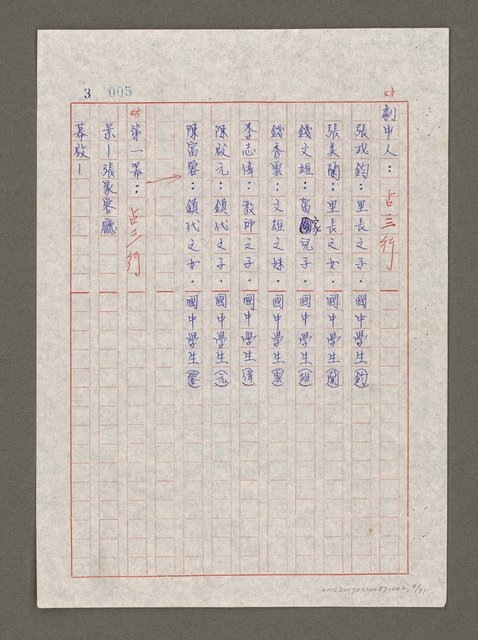 3 005
劇中人： 占三行
張成鈞：里長之子．國中學生(鈞)
張美蘭：里長之女．國中學生(蘭)
錢文雄：富家兒子．國中學生(雄)
錢秀雲：文雄之妹．國中學生(雲)
李志偉：教師之子．國中學生(偉)
陳啟元：鎮代之子．國中學生(元)
陳富馨：鎮代之女．國中學生(馨)
第一幕： 占三行
景－張家客廳
幕啟－